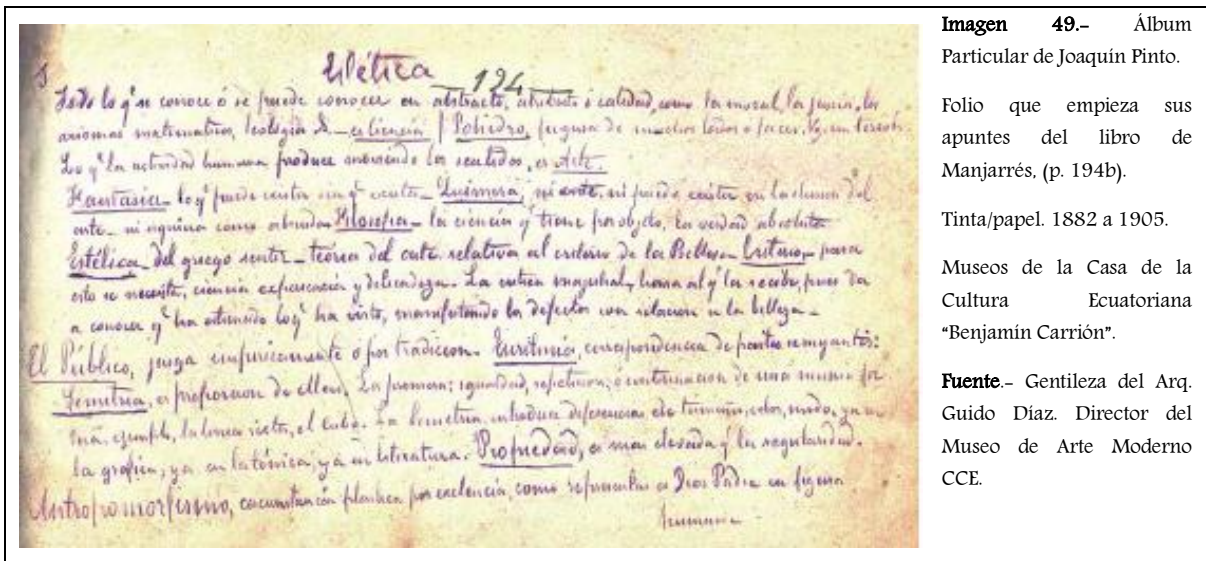 Estética 194
Todo lo q' se conoce ó se puede conocer en abstracto, atributo ó calidad, como la moral, la
axiomas matematicos, teologia & - es ciencia | Poliedro, figura de muchos lados o faces.
Lo q' la actividad humana produce moviendo los sentidos, es Arte.
Fantasia - lo q' puede existir sin q' exista - Quimera, ni existe, ni puede existir en la del
arte - ni siquiera como Filosofia - la ciencia q' tiene por objeto, la verdad absoluta
Estética - del griego sentir - teoria del arte relativa al criterio de la Belleza - Criterio, - para
esto se necesita, ciencia y delicadeza - La critica magistral, honra al q' la recibe, pues da
a conocer q' ha entendido lo q' ha visto, manifestando los defectos con relacion a la belleza -
El Público, juzga empiricamente o por tradicion - Euritmia, correspondencia de partes semejantes:
Simetria, es proporcion de ellas. La primera; igualdad, repeticion, ó continuacion de una misma for
ma, ejemplo, la linea recta, el cubo. La Simetria introduce diferencias de tamaño, color, modo, ya en
la grafica, ya en la tónica, ya en literatura. Propiedad, es mas elevada q' la regularidad.
Antropomorfismo, plastica por exelencia, como representar a Dios Padre en figura
humana -
Imagen 49.- Álbum
Particular de Joaquín Pinto.
Folio que empieza sus
apuntes del libro de
Manjarrés, (p. 194b).
Tinta/papel. 1882 a 1905.
Museos de la Casa de la
Cultura Ecuatoriana
“Benjamín Carrión”.
Fuente.- Gentileza del Arq.
Guido Díaz. Director del
Museo de Arte Moderno
CCE.